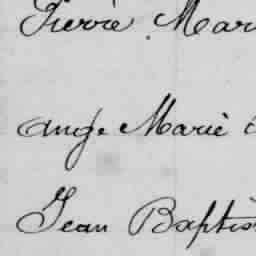 Pierre Mar
Ange Marie
Jean Baptis